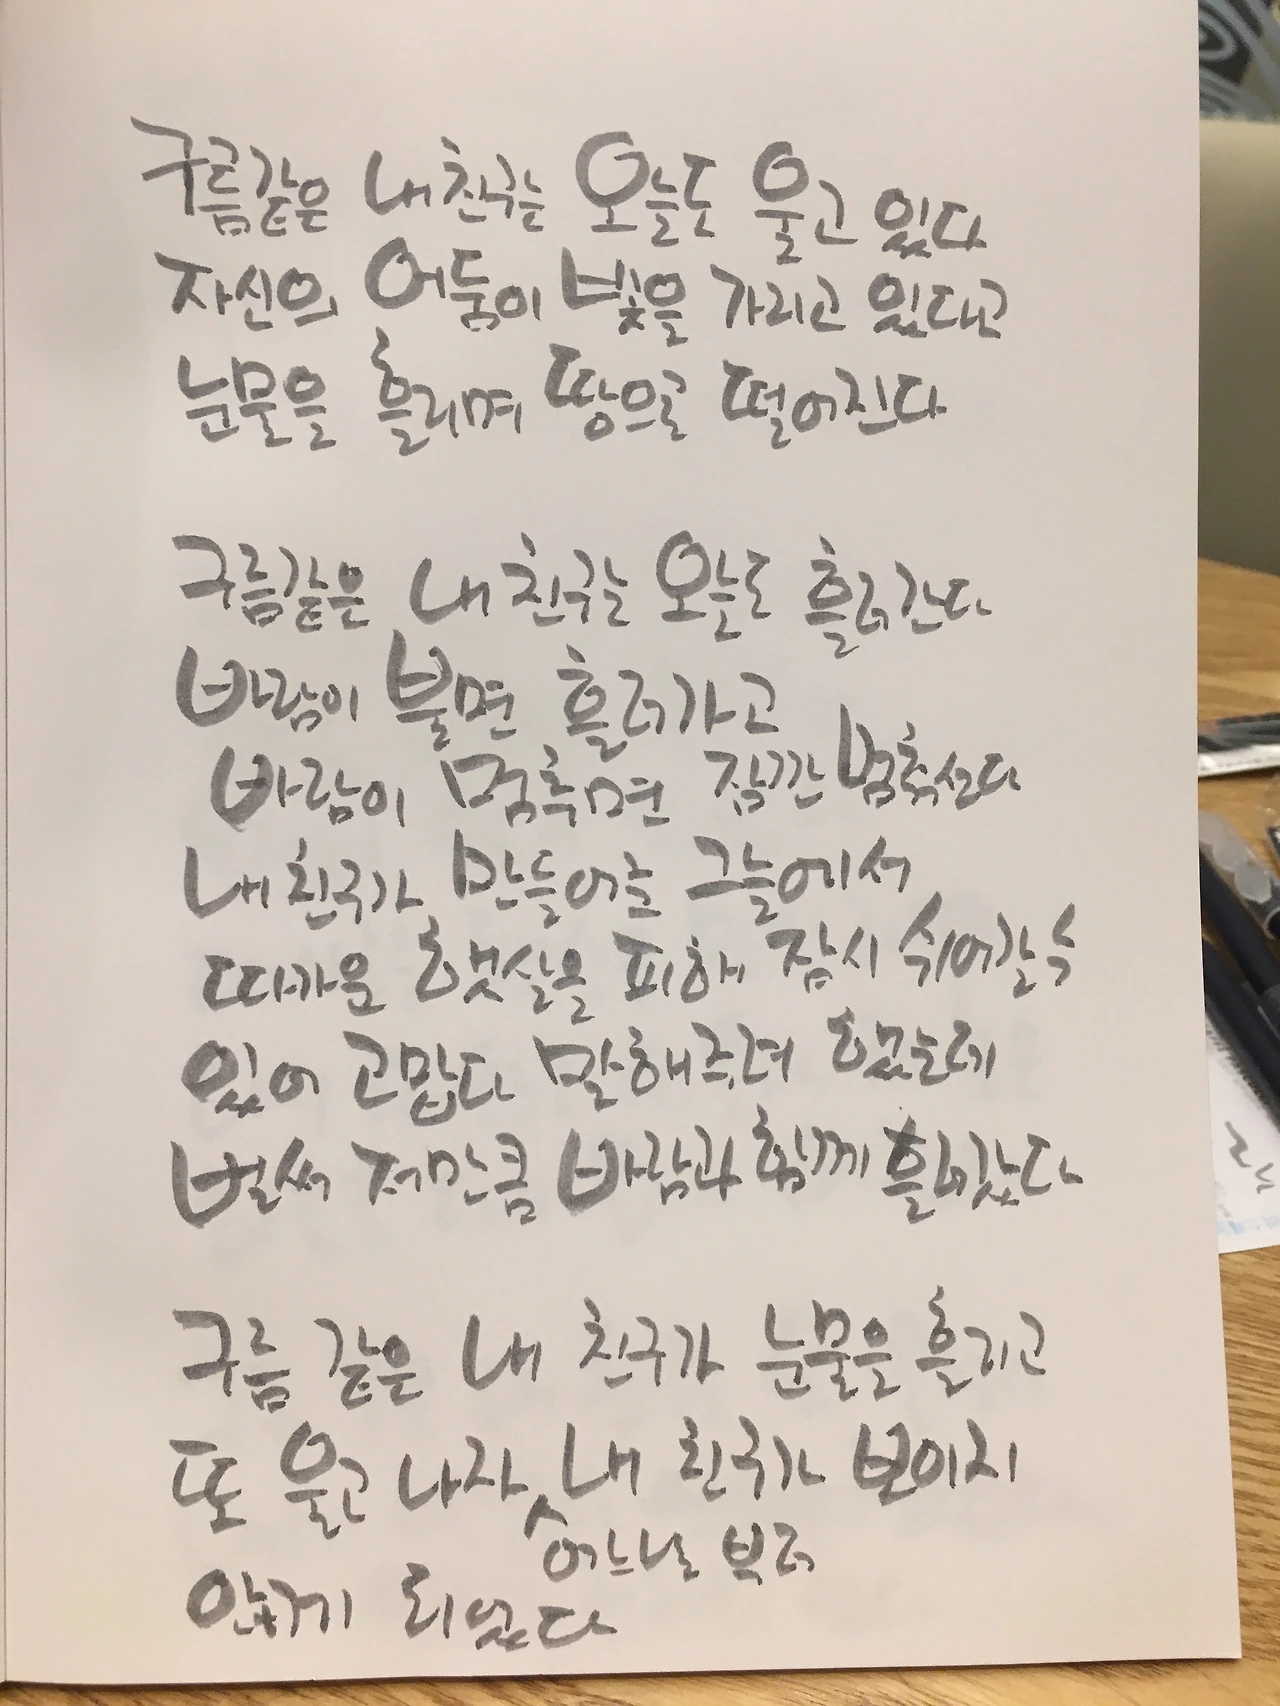 구름같은 내 친구는 오늘도 울고 있다
자신의 어둠이 빛을 가리고 있다고
눈물을 흘리며 땅으로 떨어진다
구름같은 내 친구는 오늘도 흘러간다
바람이 불면 흘러가고
바람이 멈추면 잠깐 멈춰선다
내 친구가 만들어준 그늘에서
따가운 햇살을 피해 잠시 쉬어갈 수
있어 고맙다 말해주려 했는데
벌써 저만큼 바람과 함께 흘러갔다
구름 같은 내 친구가 눈물을 흘리고
또 울고 나자, 내 친구가 보이지
어느날 부터
않게 되었다